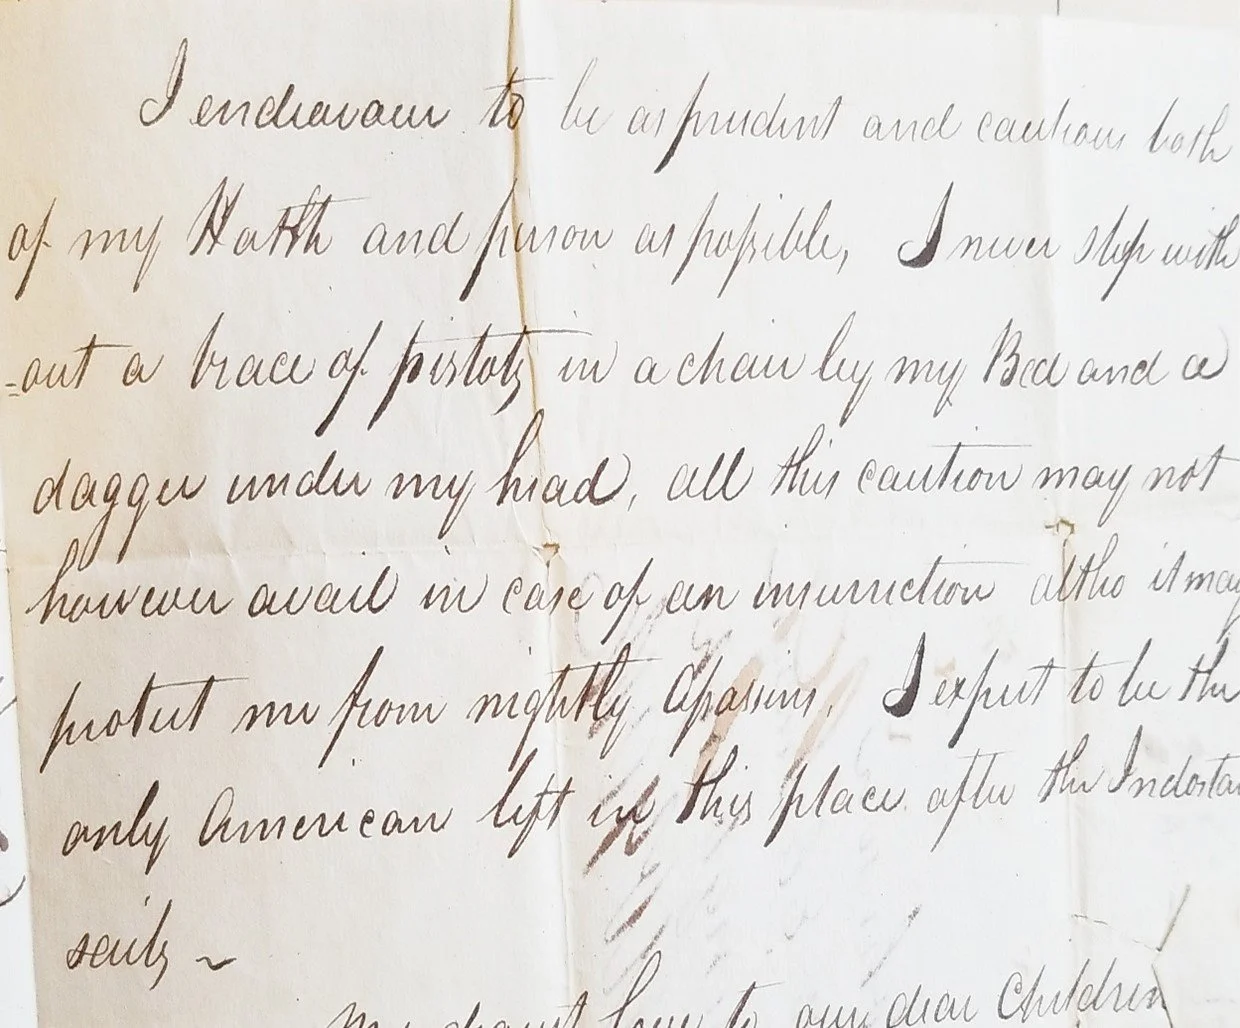 I endeavour to be as prudent and cautious both
of my Health and person as possible, I never sleep with
=out a brace of pistols in a chair by my Bed and a
dagger under my head, all this caution may not
however avail in case of an insurrection altho it may
protect me from nightly Assassins. I expect to be the
only American left in this place after the Indostan
sails ~
My dearest love to our dear Children